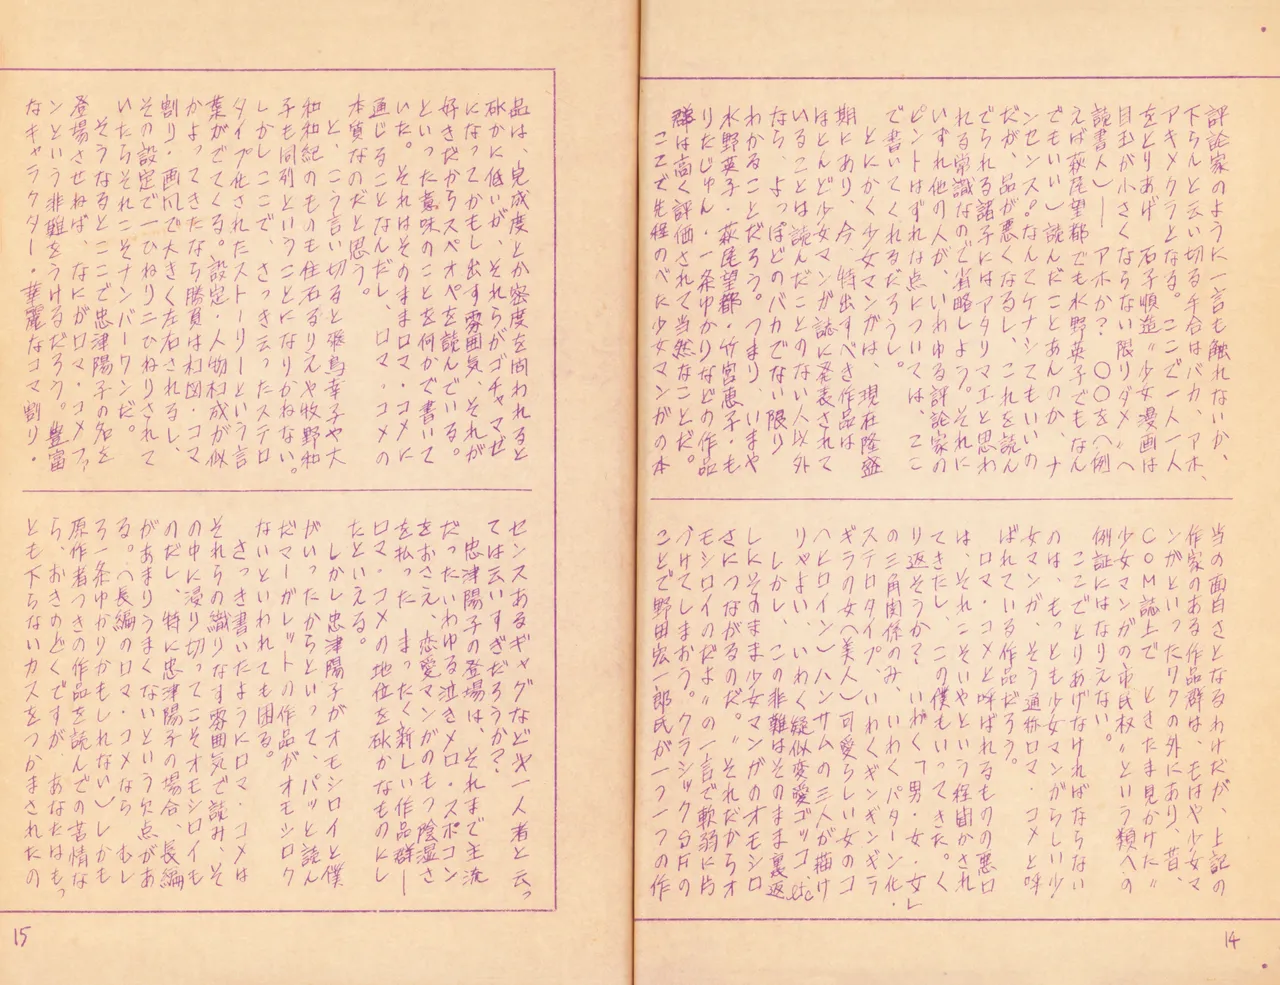 評論家のように一言も触れないか、
下らんと云い切る手合はバカ、アホ、
アキメクラとなる。ここで一人一人
をとりあげ 石子順造〝少女漫画は
目玉が小さくならない限りダメ〟へ
読書人)── アホか? ○○を(例
えば萩尾望都でも水野英子でもなん
でもいい)読んだことあんのか、ナ
ンセンス。なんてケナシてもいいの
だが、品が悪くなるし、これを読ん
でられる諸子にはアタリマエと思わ
れる常識なので省略しよう。それに
いずれ他の人が、いわゆる評論家の
ピントはずれな点については、ここ
で書いてくれるだろうし。
とにかく少女マンガは、現在隆盛
期にあり、今、特出すべき作品は
ほとんど少女マンガ誌に発表されて
いることは読んだことのない人以外
なら、よっぽどのバカでない限り
わかることだろう。つまり、いまや
水野英子・萩尾望都・竹宮恵子・も
りたじゅん・一条ゆかりなどの作品
群は高く評価されて当然なことだ。
ここで先程のべた少女マンガの本
当の面白さとなるわけだが、上記の
作家のある作品群は、もはや少女マ
ンガといったワクの外にあり、昔、
COM誌上で ときたま見かけた〝
少女マンガの市民权〟という類への
例証にはなりえない。
ここでとりあげなければならない
のは、もっとも少女マンガらしい少
女マンガ、そう通称ロマ・コメと呼
ばれている作品だろう。
ロマ・コメと呼ばれるものの悪口
は、それこそいやという程聞かされ
てきたし、この僕もいってきた。く
り返そうか? いわく「男・女・女」
の三角関係のみ、いわくパターン化・
ステロタイプ、いわくギンギンギラ
ギラの女(美人)可愛らしい女のコ
(ヒロイン)ハンサムの三人が描け
りゃよい、いわく疑似恋愛ゴッコ、etc
しかし、この非難はそのまま裏返
しにそのまま少女マンガのオモシロ
さにつながるのだ。〝それだからオ
モシロイのだよ〟の一言で軟弱に片
づけてしまおう。クラシックSFの
ことで野田宏一郎氏が一つ一つの作
14
品は、完成度とか密度を問われると
砿かに低いが、それらがゴチャマゼ
になってかもし出す雰囲気、それが
好きだからスペオペを読んでいる。
といった意味のことを何かで書いて
いた。それはそのままロマ・コメに
通じることなんだし、ロマ・コメの
本質なのだと思う。
と、こう言い切ると飛鳥幸子や大
和和紀のものも仕石るりえや牧野和
子も同列ということになりかねない。
しかしここで、さっき云ったステロ
タイプ化されたストーリーという言
葉がでてくる。設定・人物構成が似
かよってきたなら勝負は构図・コマ
割り・画風で大きく左右されるし、
その設定で一ひねり二ひねりされて
いたらそれこそナンバーワンだ。
そうなるとここで忠津陽子の名を
登場させねば、なにがロマ・コメファ
ンという非難をうけるだろう。豊富
なキャラクター・華麗なコマ割り・
センスあるギャグなど才一人者と云っ
ては云いすぎだろうか?
忠津陽子の登場は、それまで主流
だったいわゆる泣きメロ・スポコン
をおさえ、恋愛マンガのもつ陰湿さ
を払った まったく新しい作品群──
ロマ・コメの地位を砿かなものにし
たといえる。
しかし忠津陽子がオモシロイと僕
がいったからといって、パッと読ん
だマーガレットの作品がオモシロク
ないといわれても困る。
さっき書いたようにロマ・コメは
それらの織りなす雰囲気で読み、そ
の中に浸り切ってこそオモシロイも
のだし、特に忠津陽子の場合、長編
があまりうまくないという欠点があ
る。(長編のロマ・コメなら むし
ろ一条ゆかりかもしれない)しかも
原作者つきの作品を読んでの苦情な
ら、おきのどくですが、あなたはもっ
とも下らないカスをつかまされたの
15